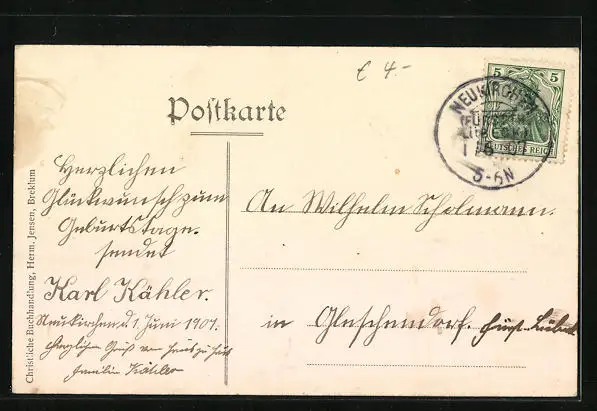 € 4.-
Postkarte
5 5
DEUTSCHES REICH
NEUKIRCHEN
5-6N
Herzlichen
Glückwunsch zum
Geburtstage.
sendet
Karl Kähler.
Neukirchen d. 1. Juni 1907.
Herzlichen Gruß von Haus zu Haus
Familie Kähler
An Wilhelm Scholmann.
in Gleschendorf. Fürst. Lübeck
Christliche Buchhandlung, Herm. Jensen, Breklum